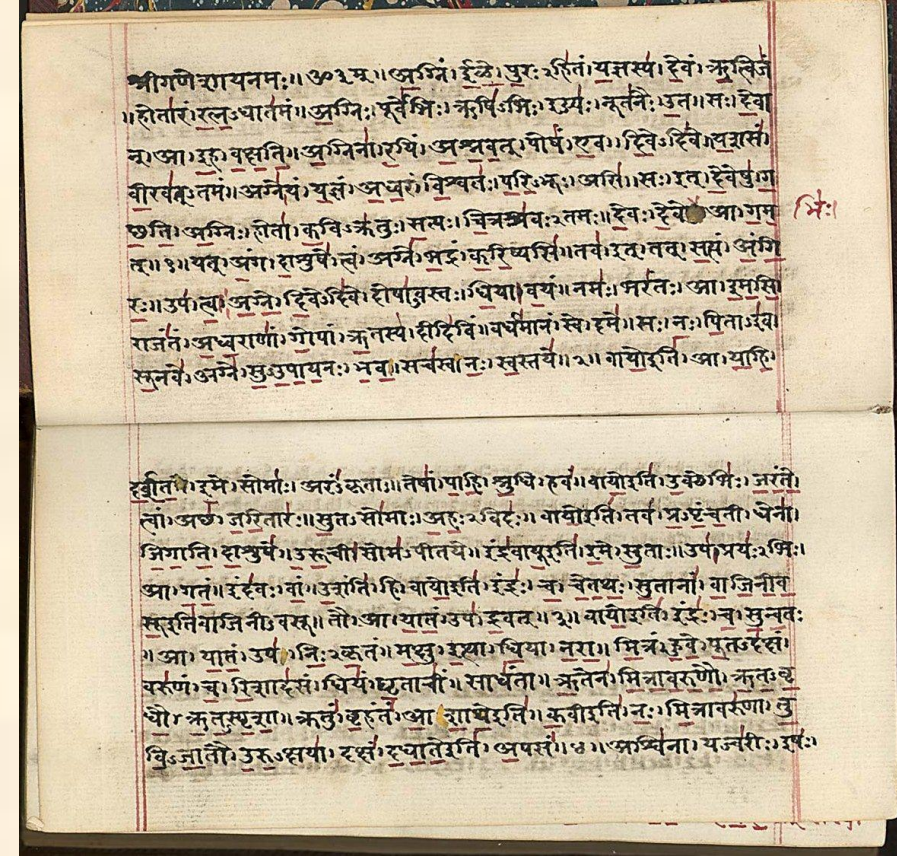 श्रीगणेशायनमः॥ॐ३म्॥अ॒ग्निं। ई॒ळे॒। पु॒रःऽहि॑तं। य॒ज्ञस्य॑। दे॒वं। ऋ॒त्विजं॑
॥होता॑रं। र॒त्न॒ऽधात॑मं॥अ॒ग्निः। पूर्वे॑भिः। ऋषि॑ऽभिः। ईड्यः॑। नूत॑नैः। उ॒त॥सः। दे॒वा
न्। आ। इ॒ह। व॒क्ष॒ति॒॥अ॒ग्निना॑। र॒यिं। अ॒श्न॒व॒त्। पोषं॑। ए॒व। दि॒वेऽदि॑वे॥य॒शसं॑
वी॒रव॑त्ऽतमं॥अग्ने॑। यं। य॒ज्ञं। अ॒ध्व॒रं। वि॒श्वतः॑। प॒रि॒ऽभूः। असि॑॥सः। इत्। दे॒वेषु॑। ग
च्छ॒ति॒। अ॒ग्निः। होता॑। क॒विऽक्र॑तुः। स॒त्यः। चि॒त्रश्र॑वःऽतमः॥दे॒वः। दे॒वे आ। ग॒म
भिः।
त्॥१॥यत्। अं॒ग। दा॒शुषे॑। त्वं। अग्ने॑। भ॒द्रं। क॒रि॒ष्यसि॑॥तव॑। इत्। तत्। स॒त्यं। अं॒गि
रः॒॥उप॑। त्वा॒। अ॒ग्ने॒। दि॒वेऽदि॑वे। दोषा॑ऽवस्तः। धि॒या। व॒यं॥नमः॑। भरं॑तः। आ। इ॒म॒सि॒
राजं॑तं। अ॒ध्व॒राणां॑। गो॒पां। ऋ॒तस्य॑। दीदि॑विं॥वर्ध॑मानं। स्वे। दमे॑॥सः। नः॒। पि॒ताऽइ॑व
सू॒नवे॑। अग्ने॑। सु॒ऽउ॒पा॒य॒नः। भ॒व॒॥सच॑स्व। नः॒। स्व॒स्तये॑॥२॥वायो॒इति॑। आ। या॒हि॒।
द॒र्श॒त॒। इ॒मे। सोमाः॑। अरं॑ऽकृताः॥तेषां॑। पा॒हि॒। श्रु॒धि। हवं॑॥वायो॒इति॑। उ॒क्थेभिः॑। ज॒रं॒ते॒।
त्वां। अच्छ॑। ज॒रि॒तारः॑॥सु॒तऽसो॑माः। अ॒हः॒ऽविदः॑॥वायो॒इति॑। तव॑। प्र॒ऽपृं॒च॒ती। धेना॑।
जि॒गा॒ति॒। दा॒शुषे॑॥उ॒रू॒ची। सोम॑ऽपीतये॥इंद्र॑वायू॒इति॑। इ॒मे। सु॒ताः॥उप॑। प्रयः॑ऽभिः।
आ। ग॒तं॒॥इंद॑वः। वां॒। उ॒शंति॑। हि। वायो॒इति॑। इंद्रः॑। च॒। चे॒त॒थः॒। सु॒तानां॑। वा॒जि॒नी॒व
सू॒इति॑वाजिनीऽवसू॥तौ। आ। या॒तं॒। उप॑। द्र॒वत्॥३॥वायो॒इति॑। इंद्रः॑। च॒। सु॒न्व॒तः
॥आ। या॒तं॒। उप॑। निः॒ऽकृ॒तं॥म॒क्षु। इ॒त्था। धि॒या। न॒रा॒॥मि॒त्रं। हु॒वे॒। पू॒तऽद॑क्षं।
वरु॑णं। च॒। रि॒शाद॑सं। धियं॑। घृ॒ताचीं॑॥साधं॑ता॥ऋ॒तेन॑। मि॒त्रा॒व॒रु॒णौ॒। ऋ॒त॒ऽवृ॒
धौ॒। ऋ॒त॒ऽस्पृ॒शा॒॥क्रतुं॑। बृ॒हंतं॑। आ॒शा॒थे॒इति॑। क॒वीइति॑। नः॒। मि॒त्रावरु॑णा। तु॒
वि॒ऽजा॒तौ। उ॒रु॒ऽक्षया॑। दक्षं॑। द॒धा॒ते॒इति॑। अ॒पसं॑॥४॥अश्वि॑ना। यज्व॑रीः। इषः॑।